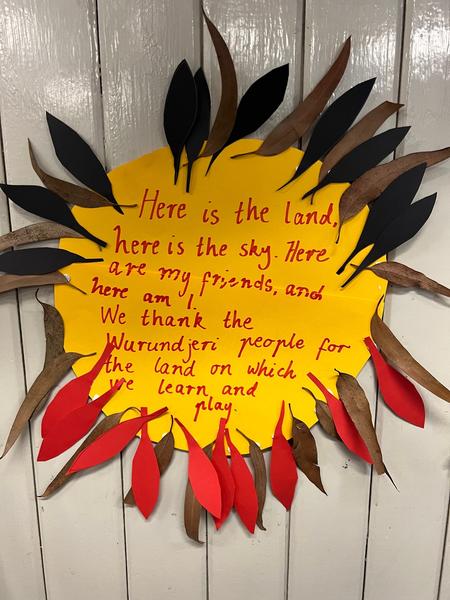 Here is the land,
here is the sky. Here
are my friends, and
here am I.
We thank the
Wurundjeri people for
the land on which
we learn and
play.